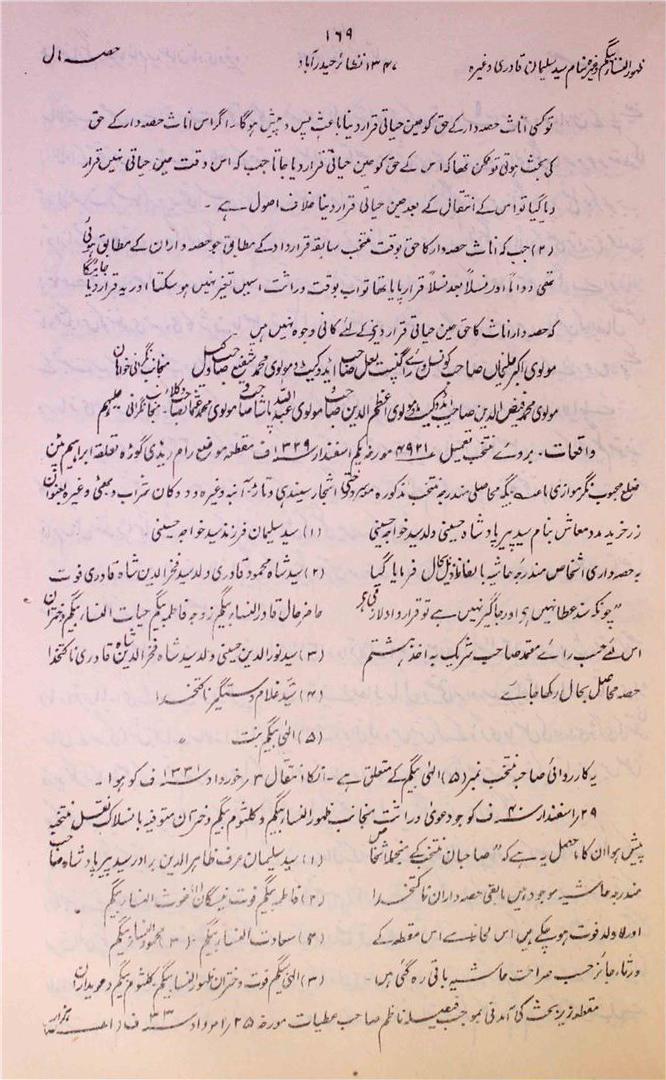 ۱۶۹
ظہور النساء بیگم وغیرہ بنام سید سلیمان قادری وغیرہ ۱۳۴۷ نظائر حیدرآباد حصہ مال
تو کسی اناث حصہ دار کے حق کو حین حیاتی قرار دینا باعث پس و پیش ہوگا۔ اگر اس اناث حصہ دار کے حق
کی بحث ہوتی تو ممکن تھا کہ اس کے حق کو حین حیاتی قرار دیا جاتا جب کہ اس وقت حین حیاتی نہیں قرار
دیا گیا تو اس کے انتقال کے بعد حین حیاتی قرار دینا خلاف اصول ہے۔
(۲) جب کہ اناث حصہ دار کا حق بوقت منتخب سابقہ قرارداد کے مطابق جو حصہ داران کے مطابق ہوئی
تھی دواماً اور نسلاً بعد نسلاً قرار پایا تھا تو اب بوقت وراثت اسمیں تغیر نہیں ہو سکتا اور یہ قرار دیا جائیگا
کہ حصہ دار اناث کا حق حین حیاتی قرار دینے کے لئے کافی وجوہ نہیں ہیں
مولوی اکبر علیخاں صاحب کونسل رائے گنپت لعل صاحب ایڈوکیٹ و مولوی محمد شفیع صاحب وکیل منجانب نگرانی خواہان
مولوی محمد فیض الدین صاحب ایڈوکیٹ و مولوی اعظم الدین صاحب مولوی عبداللہ پاشا صاحب و مولوی محمد عثمان صاحب وکلاء منجانب نگرانی علیہم
واقعات۔ بروئے منتخب تعمیل ۴۹۲۱ مورخہ یکم اسفندار ۱۳۲۹ف مقطعہ موضع رام ریڈی گوڑہ تعلقہ ابراہیم پٹن
ضلع محبوب نگر موازی بیگہ محاصلی مندرجہ منتخب مذکورہ اشجار سیندھی و تاڑ آنبہ وغیرہ و دوکان شراب و بھٹی وغیرہ بعنوان
زر خرید مدد معاش بنام سید پیر پادشاہ حسینی ولد سید خواجہ حسینی (۱) سید سلیمان فرزند سید خواجہ حسینی
بہ حصہ داری اشخاص مندرجہ حاشیہ بالفاظ ذیل بحال فرمایا گیا (۲) سید شاہ محمود قادری ولد سید فخر الدین شاہ قادری فوت
"چونکہ سند عطا نہیں ہوا اور جاگیر نہیں ہے تو قرارداد حاضر حال قادر النساء بیگم زوجہ فاطمہ بیگم حیات النساء بیگم دختران
اس لئے حسب رائے معتمد صاحب شریک بہ اخذ ہشتم (۳) سید نور الدین حسینی ولد سید شاہ فخر الدین شاہ قادری ناکتخدا
حصہ محاصل بحال رکھا جائے (۴) سید غلام دستگیر ناکتخدا
(۵) الٰہی بیگم بنت
یہ کارروائی صاحبہ منتخب نمبر (۵) الٰہی بیگم کے متعلق ہے۔ انکا انتقال ۳؍خورداد ۱۳۳۱ف کو ہوا۔
۲۹؍اسفندار ۴۰ف کو جو دعویٰ وراثت منجانب ظہور النساء بیگم و کلثوم بیگم دختران متوفیہ بانسلاک نقل منتخب
پیش ہوا ان کا ماحصل یہ ہے کہ "صاحبان منتخب کے منجملہ اشخاص (۱) سید سلیمان عرف ظاہر الدین برادر سید پیر پادشاہ صاحب
مندرجہ حاشیہ موجود ہیں مابقی حصہ داران ناکتخدا (۲) فاطمہ بیگم فوت غوث النساء بیگم
اور لاولد فوت ہو چکے ہیں اس لحاظ سے اس مقطعہ کے (۲) سعادت النساء بیگم۔ (۳) محمود النساء بیگم
ورثاء جائز حسب صراحت حاشیہ باقی رہ گئی ہیں۔ (۴) الٰہی بیگم فوت دختران ظہور النساء بیگم کلثوم بیگم دعویداران
مقطعہ زیر بحث کی آمدنی بموجب فیصلہ ناظم صاحب عطیات مورخہ ۲۵؍امرداد ۳۳ف